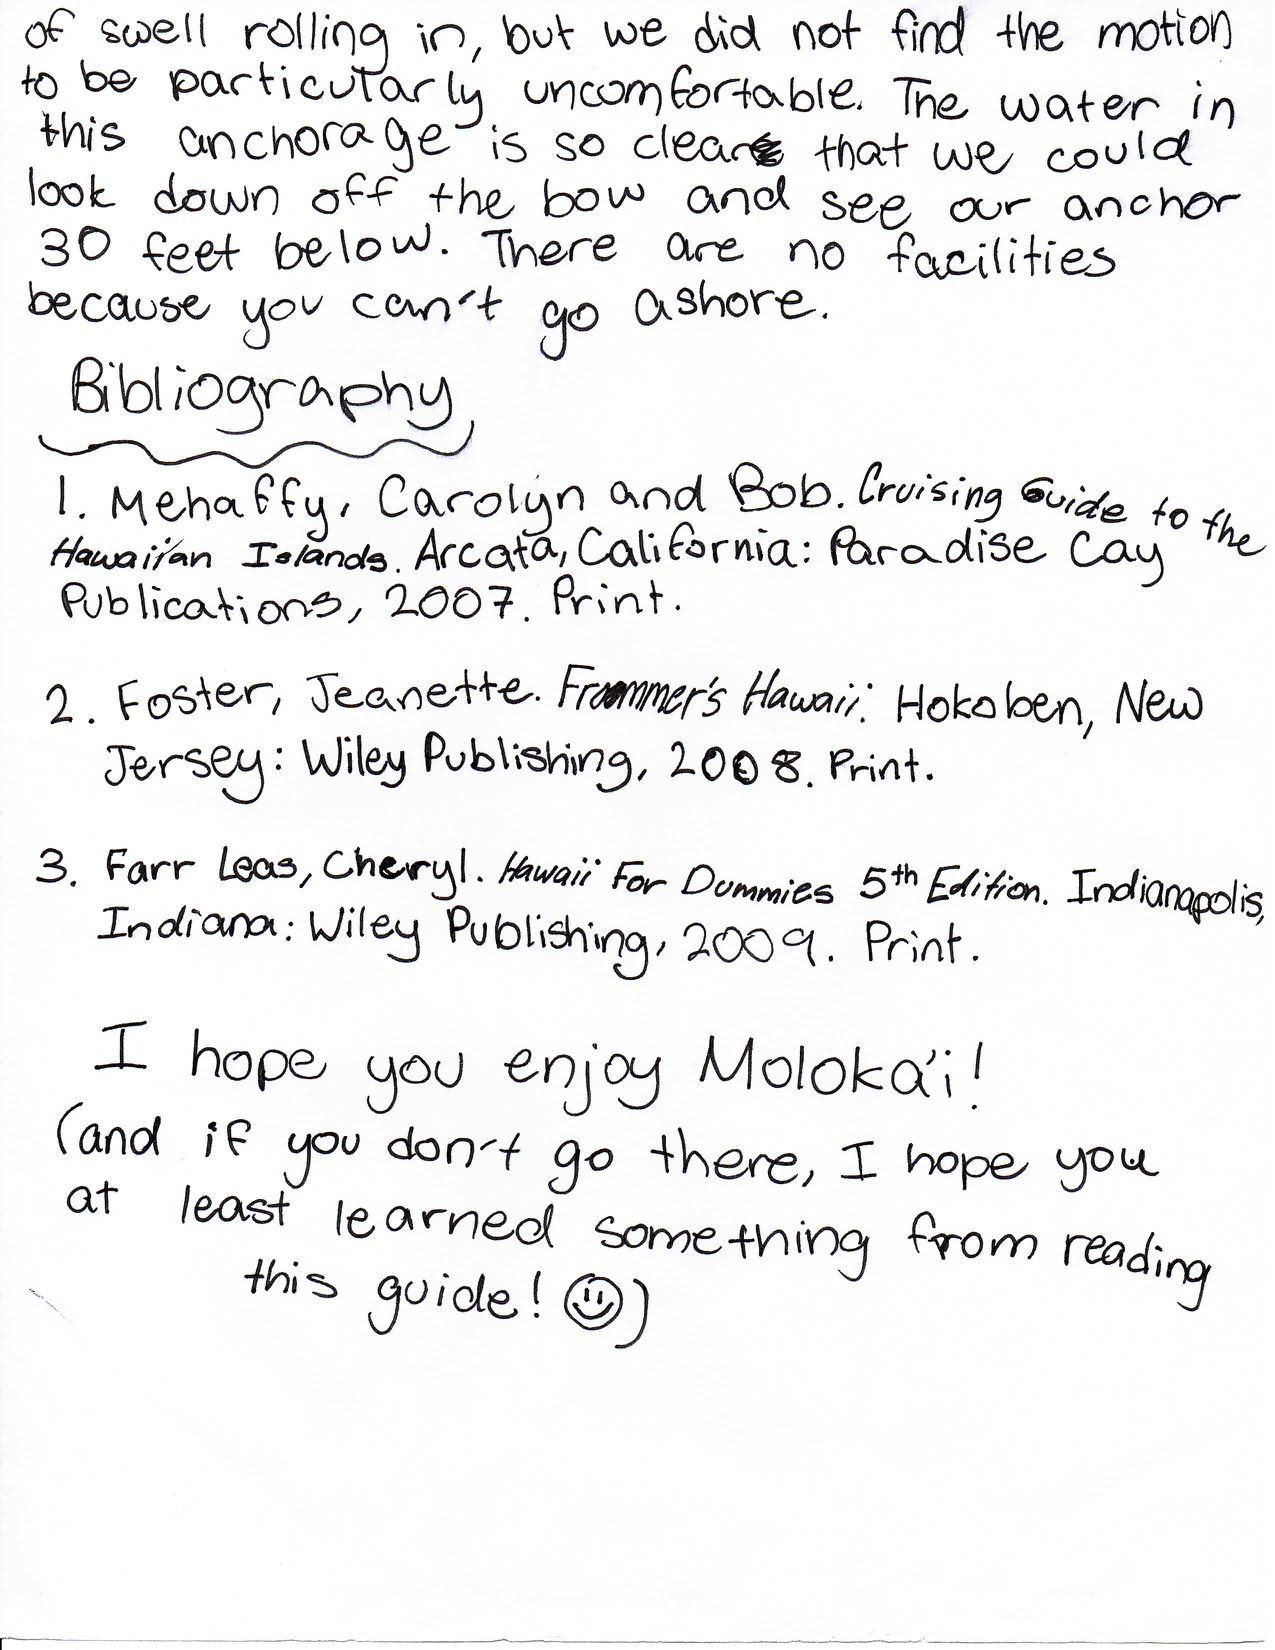 of swell rolling in, but we did not find the motion
to be particularly uncomfortable. The water in
this anchorage is so clear that we could
look down off the bow and see our anchor
30 feet below. There are no facilities
because you can't go ashore.
Bibliography
1. Mehaffy, Carolyn and Bob. Cruising Guide to the
Hawaiian Islands. Arcata, California: Paradise Cay
Publications, 2007. Print.
2. Foster, Jeanette. Frommer's Hawaii. Hokoben, New
Jersey: Wiley Publishing, 2008. Print.
3. Farr Leas, Cheryl. Hawaii For Dummies 5th Edition. Indianapolis,
Indiana: Wiley Publishing, 2009. Print.
I hope you enjoy Moloka'i!
(and if you don't go there, I hope you
at least learned something from reading
this guide! ☺)